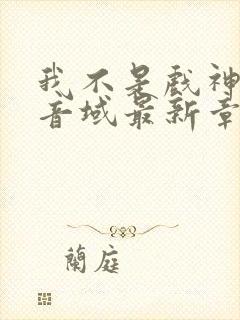 我不是戏神
音域最新章
蘭庭